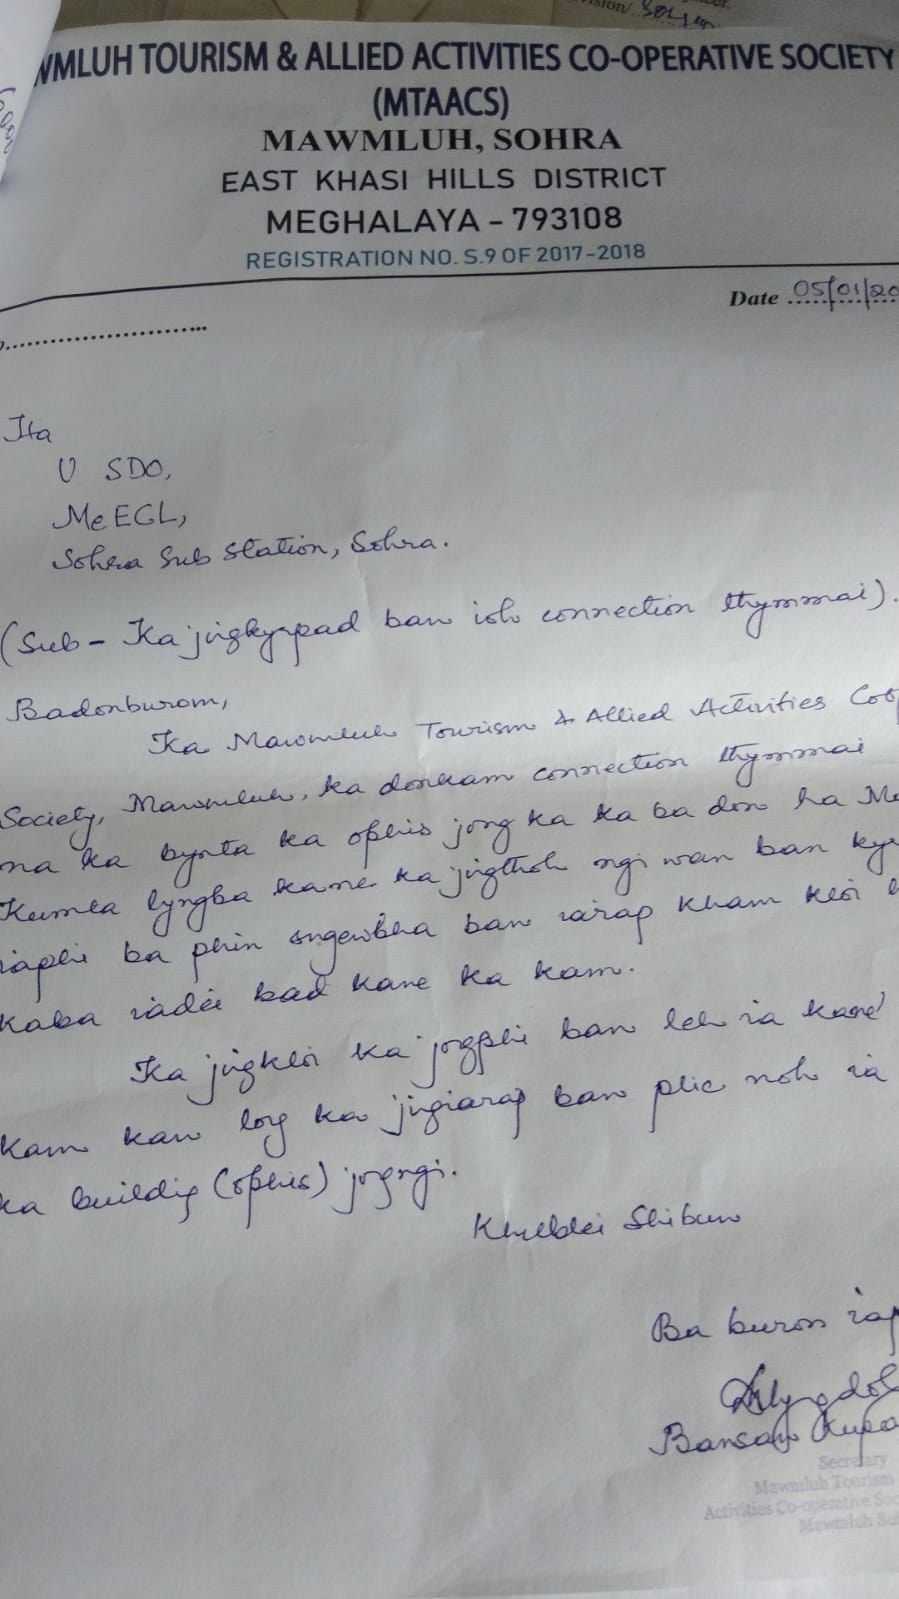 WMLUH TOURISM & ALLIED ACTIVITIES CO-OPERATIVE SOCIETY
(MTAACS)
MAWMLUH, SOHRA
EAST KHASI HILLS DISTRICT
MEGHALAYA - 793108
REGISTRATION NO. S.9 OF 2017-2018
Date 05/01/20
Ita
U SDO,
MeECL,
Sohra Sub Station, Sohra.
(Sub - Ka jingkyrpad ban ioh connection thymmai).
Badonburom,
Ka Mawmluh Tourism & Allied Activities Coop
Society, Mawmluh, ka donkam connection thymmai
na ka bynta ka ophis jong ka ka ba don ha Ma
Kumta lyngba kane ka jingthoh ngi wan ban kyr
iaphi ba phin sngewbha ban iarap kham kloi
kaba iadei bad kane ka kam.
Ka jingkloi ka jongphi ban leh ia kane
kam kan long ka jingiarap ban plie noh ia
ka building (ophis) jongngi.
Khublei Shibun
Ba buron iap
Bansan Kupa
Secretary
Mawmluh Tourism
Activities Co-operative Soc
Mawmluh